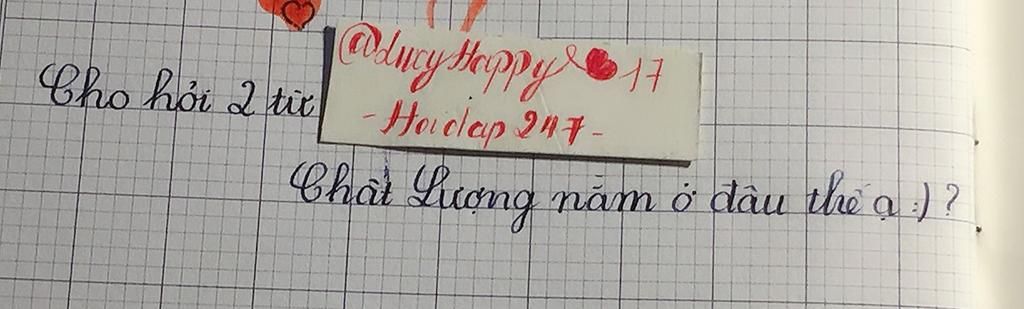 Cho hỏi 2 từ
@LucyHappy 17
- Hoidap 247 -
Chất Lượng nằm ở đâu thế ạ :) ?